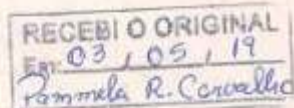 RECEBI O ORIGINAL
Em: 03 / 05 / 19
Pammela R. Carvalho